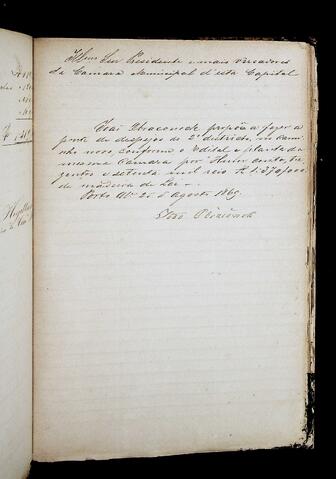 Illmos Snr Presidente e mais Vereadores
da Camara Municipal d'esta Capital
João propõe a fazer a
ponte de despejos do 2º districto, no caminho
novo conforme o edital e planta da
mesma Camara por hum conto, tre
zentos e setenta mil reis R 1:370,000
de madeira de Lei.
Porto Ale 20 d Agosto 1869
João